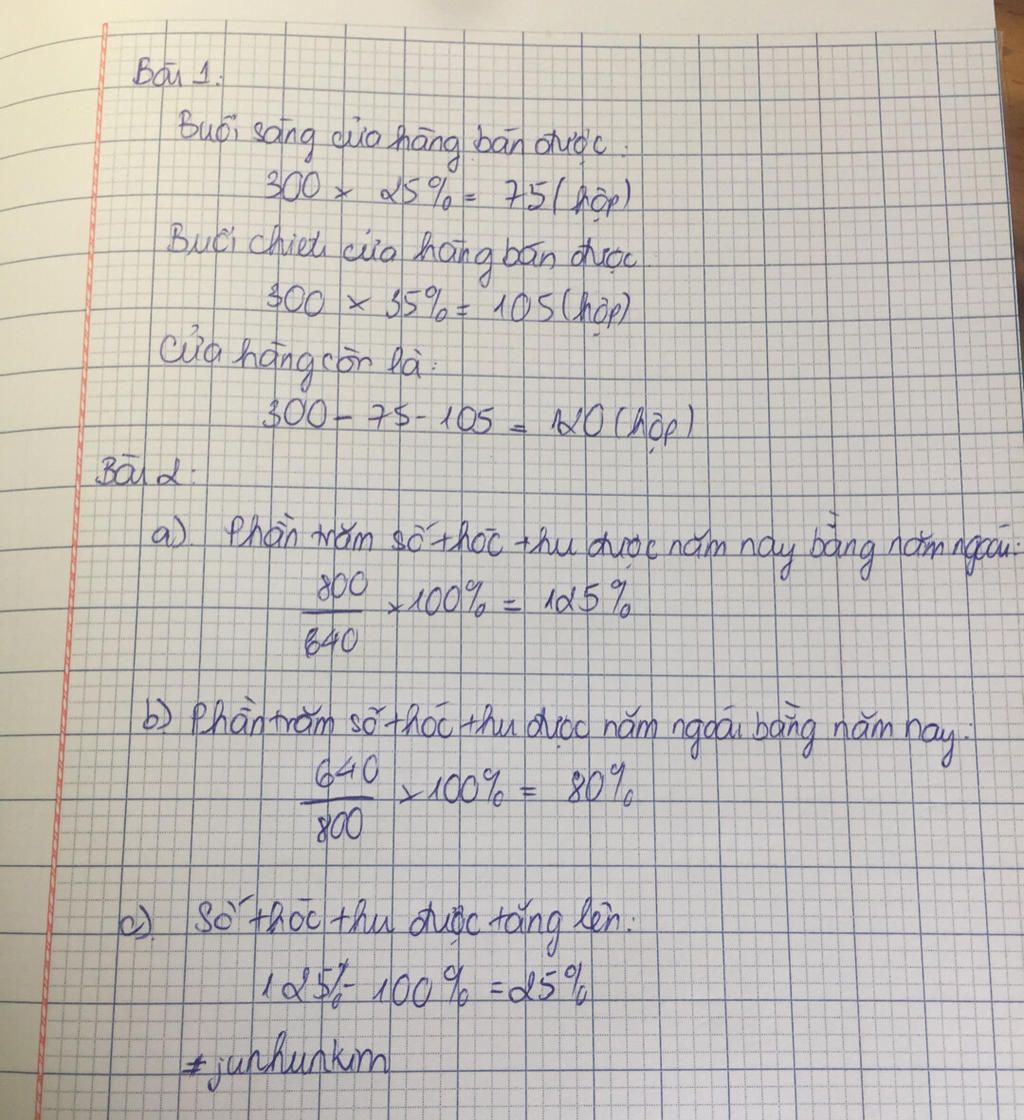 Bài 1:
Buổi sáng cửa hàng bán được:
300 × 25% = 75 (hộp)
Buổi chiều cửa hàng bán được
300 × 35% = 105 (hộp)
Cửa hàng còn là:
300 - 75 - 105 = 120 (hộp)
Bài 2:
a) Phần trăm số thóc thu được năm nay bằng năm ngoái:
800
/640 × 100% = 125%
b) Phần trăm số thóc thu được năm ngoái bằng năm nay:
640
/800 × 100% = 80%
c) Số thóc thu được tăng lên:
125% - 100% = 25%
#junhunkim